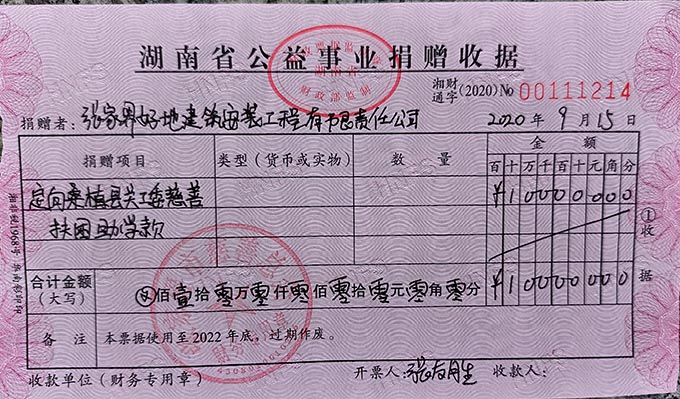 湖南省公益事业捐赠收据
财政部监制
湘财通字(2020)No 00111214
捐赠者：张家界好地建筑安装工程有限责任公司 2020年9月15日
捐赠项目 类型（货币或实物） 数量 金额
百十万千百十元角分
定向桑植县关工委慈善 ¥10000000
扶困助学款
合计金额（大写） ⊗佰壹拾零万零仟零佰零拾零元零角零分 ¥10000000
①收据
备注 本票据使用至2022年底，过期作废。
收款单位（财务专用章） 开票人：张友胜 收款人：